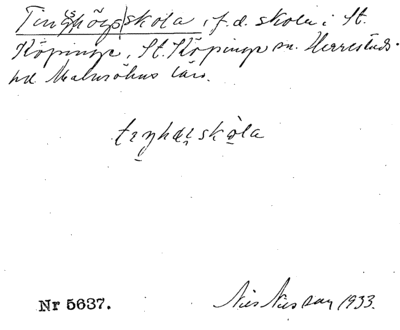 Tingshögs|skola, f.d. skola i St.
Köpinge, St. Köpinge sn. Herrestads
hd Malmöhus län.
Nr 5637.
Nils Nilsson 1933.